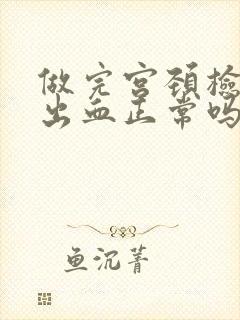 做完宫颈檢
出血正常吗
鱼沉菁